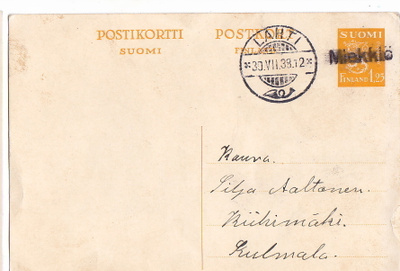 POSTIKORTTI
SUOMI
POSTKORT
FINLAND
LAHTI
*30.VII.38.12*
SUOMI
Miekkiö
FINLAND 1.25
Rouva.
Silja Aaltonen.
Riihimäki.
Kulmala.